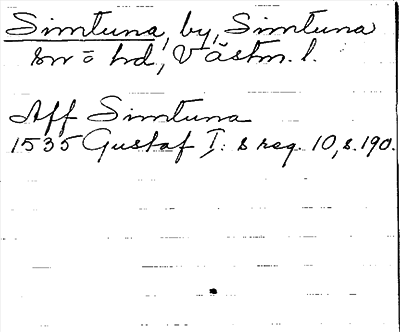 Simtuna, by, Simtuna
sn = hd, Västm. l.
Aff Simtuna
1535 Gustaf I: s reg. 10, s. 190.